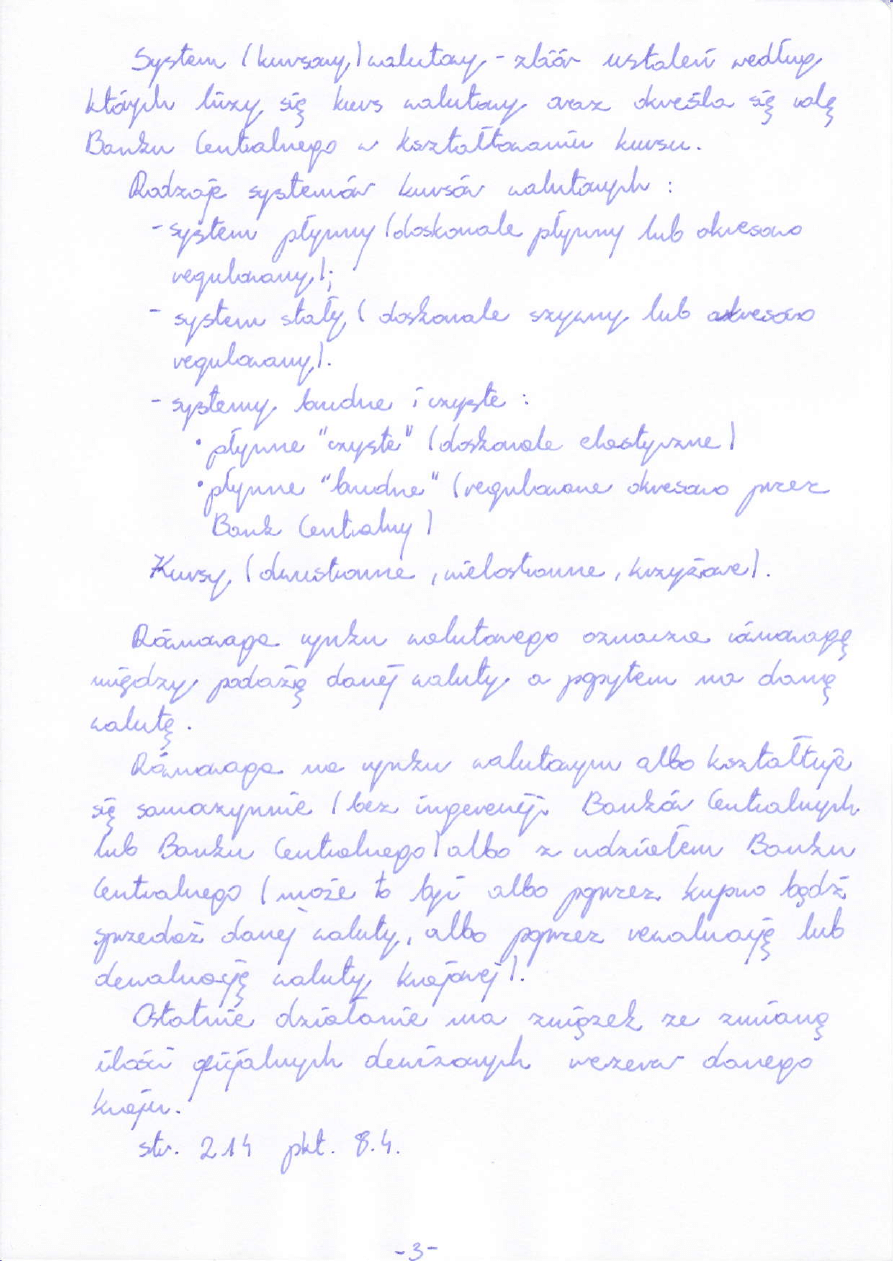 System (kursowy) walutowy - zbiór ustaleń według
których liczy się kurs walutowy oraz określa się rolę
Banku Centralnego w kształtowaniu kursu.
Rodzaje systemów kursów walutowych :
- system płynny (doskonale płynny lub okresowo
regulowany);
- system stały ( doskonale sztywny lub okresowo
regulowany).
- systemy brudne i czyste :
• płynne "czyste" (doskonale elastyczne)
• płynne "brudne" (regulowane okresowo przez
Bank Centralny)
Kursy (dwustronne, wielostronne, krzyżowe).
Równowaga rynku walutowego oznacza równowagę
między podażą danej waluty a popytem na daną
walutę.
Równowaga na rynku walutowym albo kształtuje
się samoczynnie (bez ingerencji Banków Centralnych
lub Banku Centralnego) albo z udziałem Banku
Centralnego (może to być albo poprzez kupno bądź
sprzedaż danej waluty, albo poprzez rewaluację lub
dewaluację waluty krajowej).
Ostatnie działanie ma związek ze zmianą
ilości oficjalnych dewizowych rezerw danego
kraju.
str. 214 pkt. 8.4.
-3-